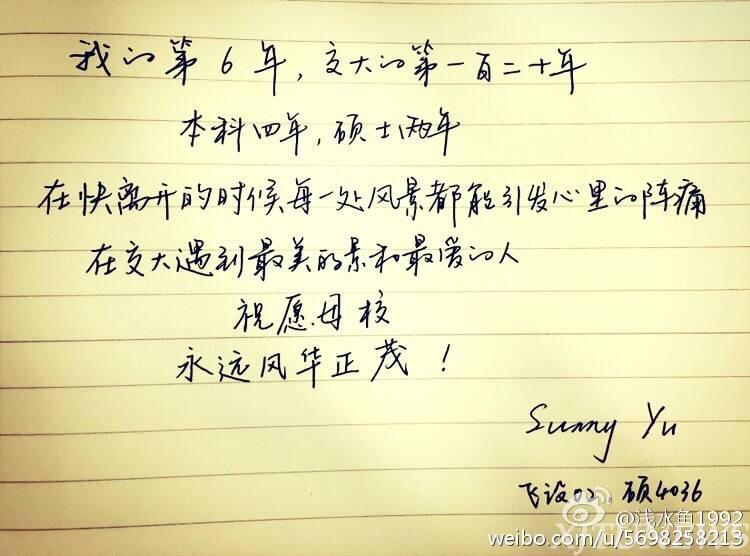 我的第6年，交大的第一百二十年
本科四年，硕士两年
在快离开的时候每一处风景都能引发心里的阵痛
在交大遇到最美的景和最爱的人
祝愿母校
永远风华正茂！
Sunny Yu
飞设 硕4036
@浅水鱼1992
weibo.com/u/5698258213